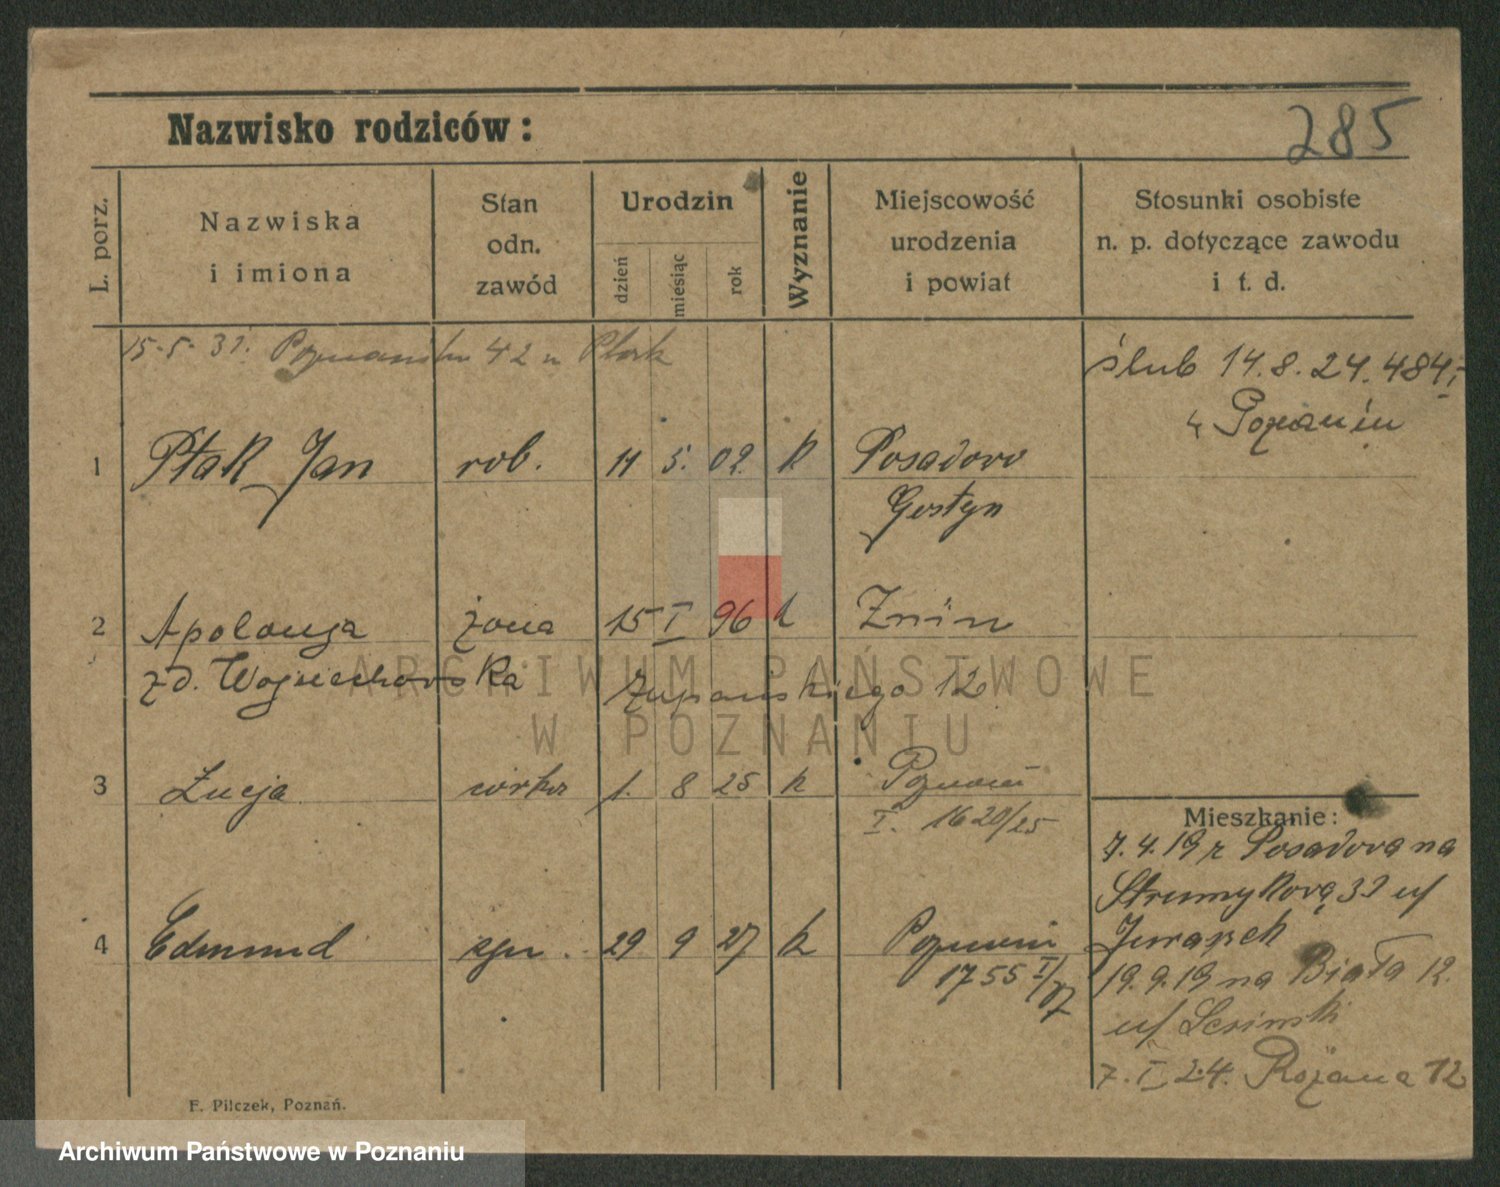 Nazwisko rodziców:
285
L. porz.
Nazwiska
i imiona
Stan
odn.
zawód
Urodzin
dzień
miesiąc
rok
Wyznanie
Miejscowość
urodzenia
i powiat
Stosunki osobiste
n. p. dotyczące zawodu
i t. d.
15.5.31. 42 u Ptak
ślub 14.8.24. 484/I
w Poznaniu
1 Ptak Jan rob. 5. 02. k Posadowo
Gostyn
2 Apolonja żona 15 I 96 k Żnin
z d. Wojciechowska Żupańskiego 12
3 Łucja córka 1. 8 25 k Poznań
I. 1620/25
4 Edmund syn. 29. 9 27 k Poznań
1755 I/27
Mieszkanie:
7.4.19 z Posadowa na
Strumykową 32 u/
19.9.19 na Biała 12.
u/
7. I 24. Różana 12
F. Pilczek, Poznań.
ARCHIWUM PAŃSTWOWE
W POZNANIU
Archiwum Państwowe w Poznaniu